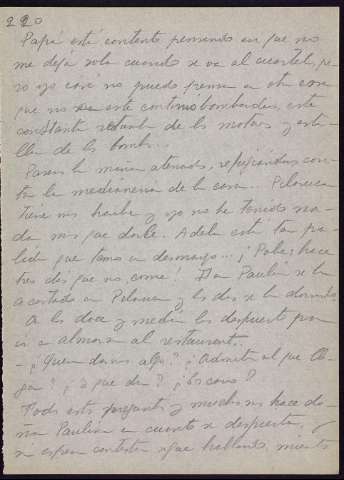 220
Papá está contento pensando en que no
me deja sola cuando se va al cuartel, pe-
ro yo casi no puedo pensar en otra cosa
que no sea este continuo bombardeo, este
constante retumbar de los motores y esta-
llar de las bombas...
Pasan la mañana aterradas, refugiándose con-
tra la medianería de la casa... Peloseca
tiene más hambre y yo no he tenido na-
da más que darle. Adela está tan pá-
lida que temo un desmayo... ¡Pobre, hace
tres días que no come! Doña Paulina se ha
acostado con Peloseca y las dos se han dormido
A las doce y media las despierto para
ir a almorzar al restaurante.
- ¿Quién danos algo? ¿Admiten al que lle-
ga? ¿a qué da? ¿Es caro?
Todas estas preguntas y muchas más hace do-
ña Paulina en cuanto se despierta, y
sin esperar contestación sigue hablando, mientras